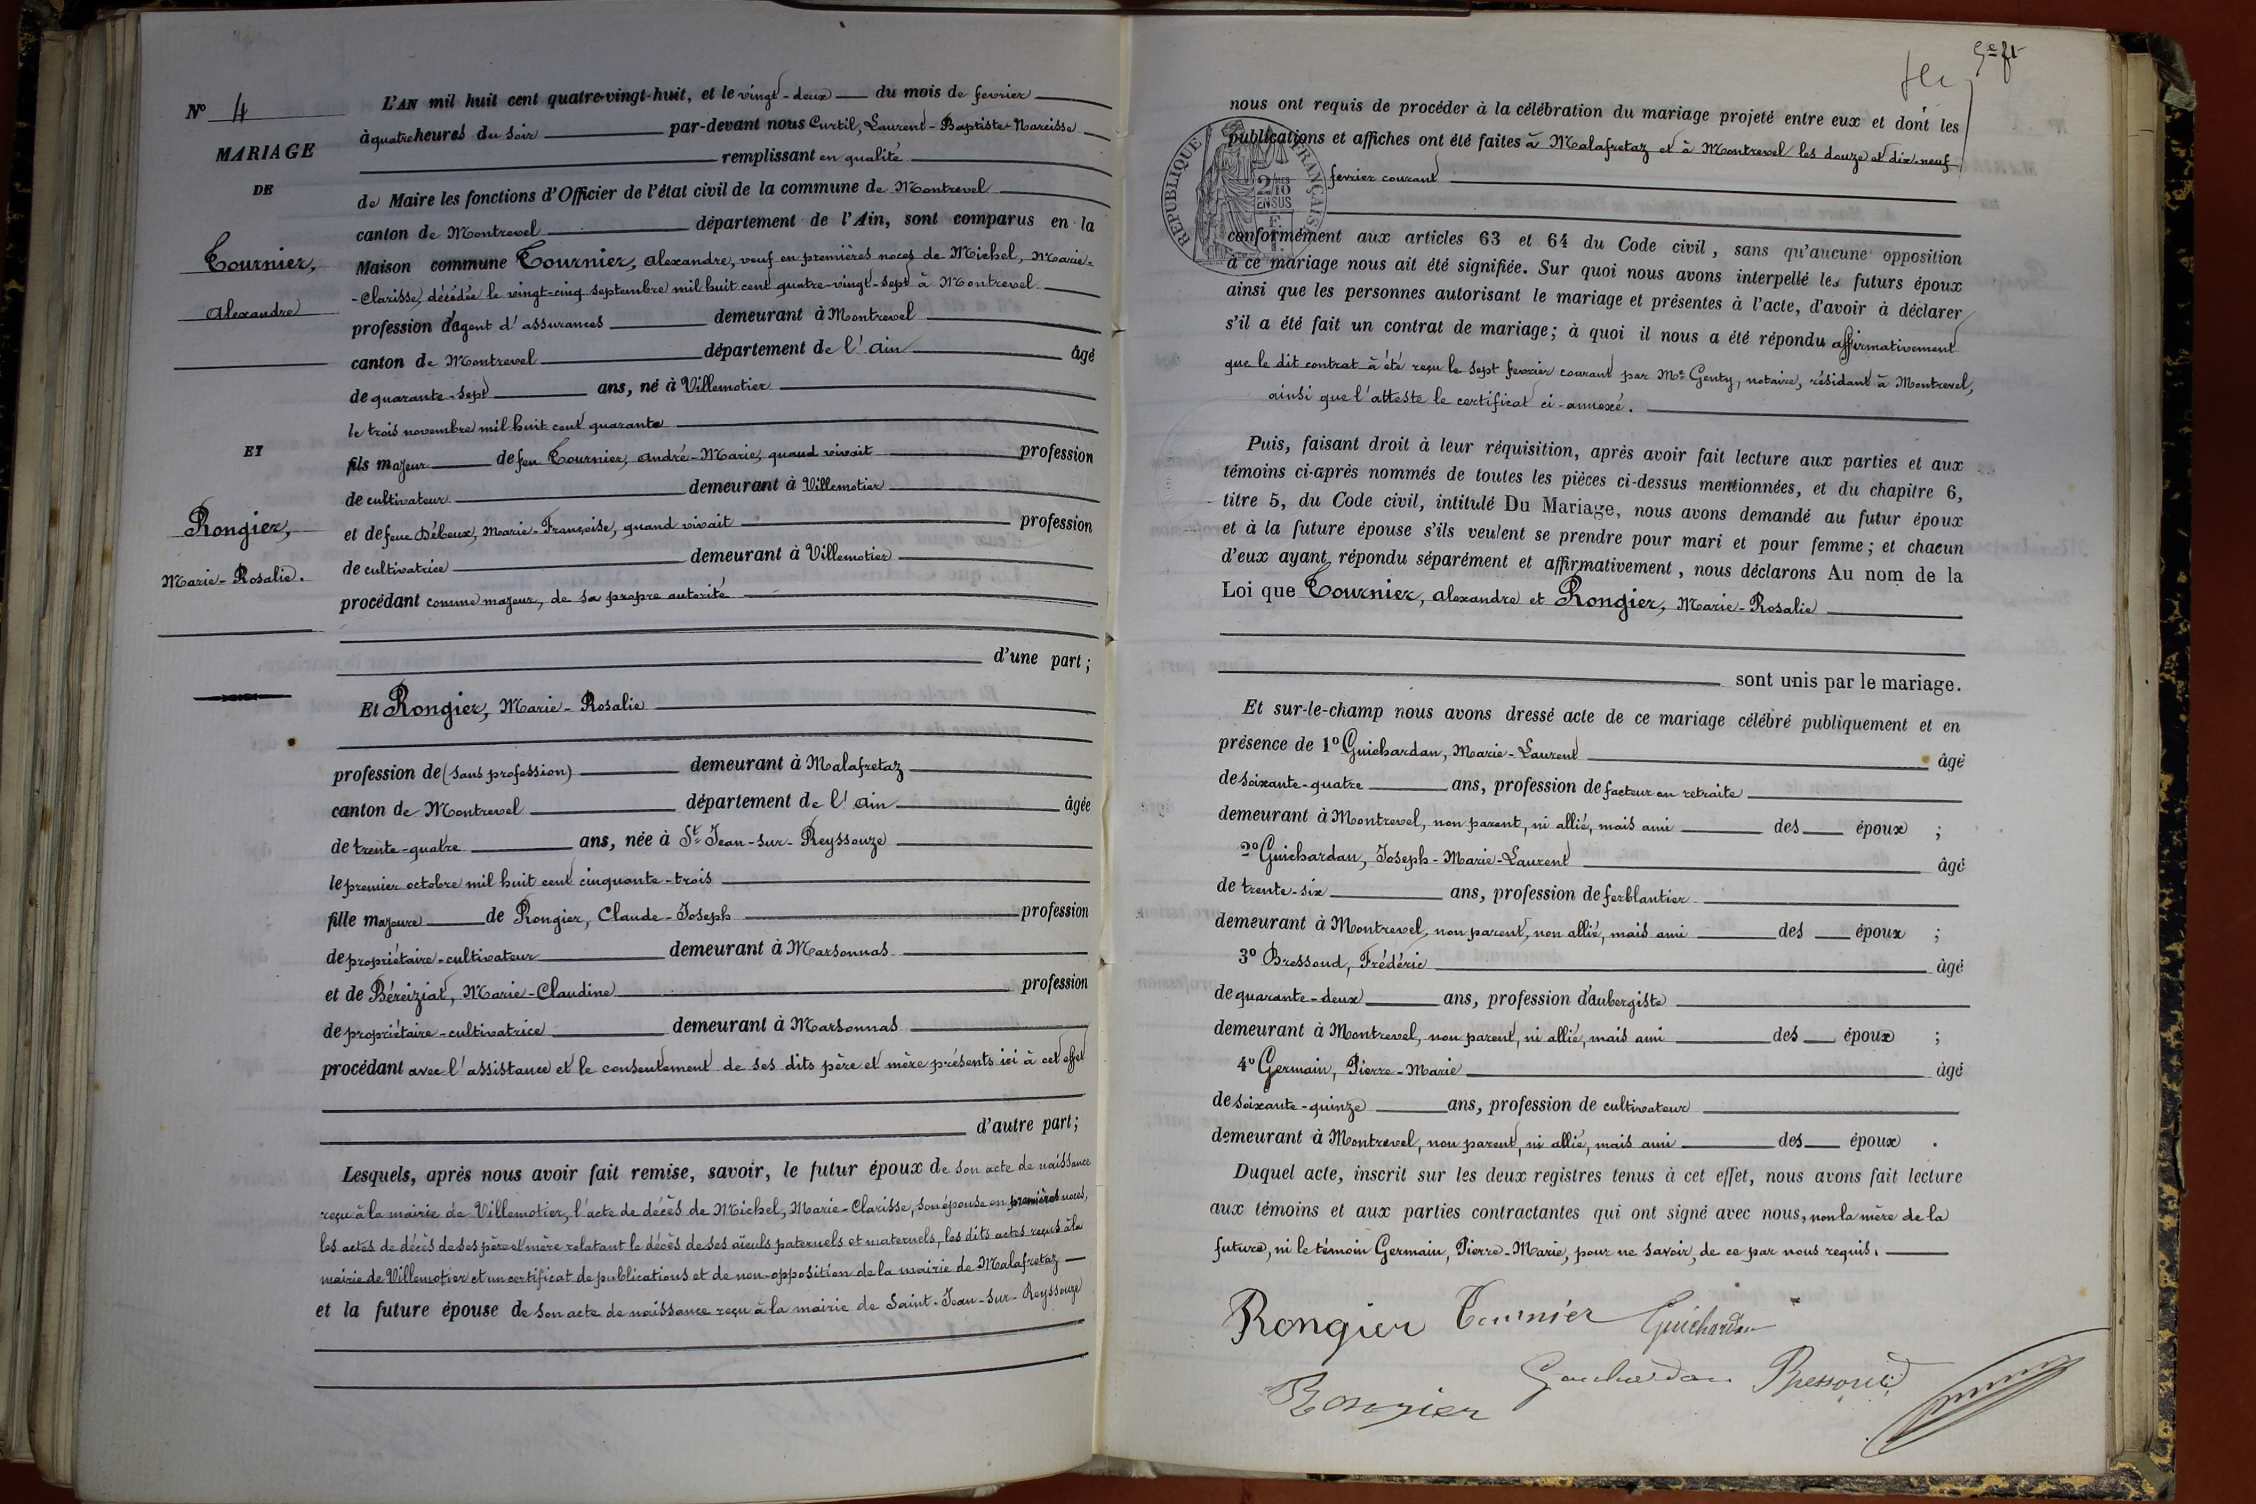 N° 4
MARIAGE
DE
Tournier,
Alexandre
ET
Rongier,
Marie-Rosalie.
L'AN mil huit cent quatre-vingt-huit, et le vingt-deux du mois de fevrier
à quatre heures du soir par-devant nous Curtil, Laurent-Baptiste-Narcisse
remplissant en qualité
de Maire les fonctions d'Officier de l'état civil de la commune de Montrevel
canton de Montrevel département de l'Ain, sont comparus en la
Maison commune Tournier, Alexandre, veuf en premières noces de Michel, Marie-
-Clarisse, décédée le vingt-cinq septembre mil huit cent quatre-vingt-sept à Montrevel
profession d'agent d'assurances demeurant à Montrevel
canton de Montrevel département de l'Ain âgé
de quarante-sept ans, né à Villemotier
le trois novembre mil huit cent quarante
fils majeur de feu Tournier, André-Marie, quand vivait profession
de cultivateur demeurant à Villemotier
et de feue Débeux, Marie-Françoise, quand vivait profession
de cultivatrice demeurant à Villemotier
procédant comme majeur, de sa propre autorité
d'une part;
Et Rongier, Marie-Rosalie
profession de (sans profession) demeurant à Malafretaz
canton de Montrevel département de l'Ain âgée
de trente-quatre ans, née à St Jean-sur-Reyssouze
le premier octobre mil huit cent cinquante-trois
fille majeure de Rongier, Claude-Joseph profession
de propriétaire-cultivateur demeurant à Marsonnas
et de Béreiziat, Marie-Claudine profession
de propriétaire-cultivatrice demeurant à Marsonnas
procédant avec l'assistance et le consentement de ses dits père et mère présents ici à cet effet
d'autre part;
Lesquels, après nous avoir fait remise, savoir, le futur époux de son acte de naissance
reçu à la mairie de Villemotier, l'acte de décès de Michel, Marie-Clarisse, son épouse en premières noces,
les actes de décès de ses père et mère relatant le décès de ses aïeuls paternels et maternels, les dits actes reçus à la
mairie de Villemotier et un certificat de publications et de non-opposition de la mairie de Malafretaz
et la future épouse de son acte de naissance reçu à la mairie de Saint-Jean-sur-Reyssouze
nous ont requis de procéder à la célébration du mariage projeté entre eux et dont les
publications et affiches ont été faites à Malafretaz et à Montrevel les douze et dix-neuf
fevrier courant
RÉPUBLIQUE FRANÇAISE
2/10 EN SUS
conformément aux articles 63 et 64 du Code civil, sans qu'aucune opposition
à ce mariage nous ait été signifiée. Sur quoi nous avons interpellé les futurs époux
ainsi que les personnes autorisant le mariage et présentes à l'acte, d'avoir à déclarer
s'il a été fait un contrat de mariage; à quoi il nous a été répondu affirmativement
que le dit contrat à été reçu le sept fevrier courant par Me Genty, notaire, résidant à Montrevel,
ainsi que l'atteste le certificat ci-annexé.
Puis, faisant droit à leur réquisition, après avoir fait lecture aux parties et aux
témoins ci-après nommés de toutes les pièces ci-dessus mentionnées, et du chapitre 6,
titre 5, du Code civil, intitulé Du Mariage, nous avons demandé au futur époux
et à la future épouse s'ils veulent se prendre pour mari et pour femme; et chacun
d'eux ayant répondu séparément et affirmativement, nous déclarons Au nom de la
Loi que Tournier, Alexandre et Rongier, Marie-Rosalie
sont unis par le mariage.
Et sur-le-champ nous avons dressé acte de ce mariage célébré publiquement et en
présence de 1° Guichardan, Marie-Laurent âgé
de soixante-quatre ans, profession de facteur en retraite
demeurant à Montrevel, non parent, ni allié, mais ami des époux ;
2° Guichardan, Joseph-Marie-Laurent âgé
de trente-six ans, profession de ferblantier
demeurant à Montrevel, non parent, non allié, mais ami des époux ;
3° Bressoud, Frédéric âgé
de quarante-deux ans, profession d'aubergiste
demeurant à Montrevel, non parent, ni allié, mais ami des époux ;
4° Germain, Pierre-Marie âgé
de soixante-quinze ans, profession de cultivateur
demeurant à Montrevel, non parent, ni allié, mais ami des époux .
Duquel acte, inscrit sur les deux registres tenus à cet effet, nous avons fait lecture
aux témoins et aux parties contractantes qui ont signé avec nous, non la mère de la
future, ni le témoin Germain, Pierre-Marie, pour ne savoir, de ce par nous requis.
Rongier Tournier Guichardan
Guichardan Bressoud
Rongier